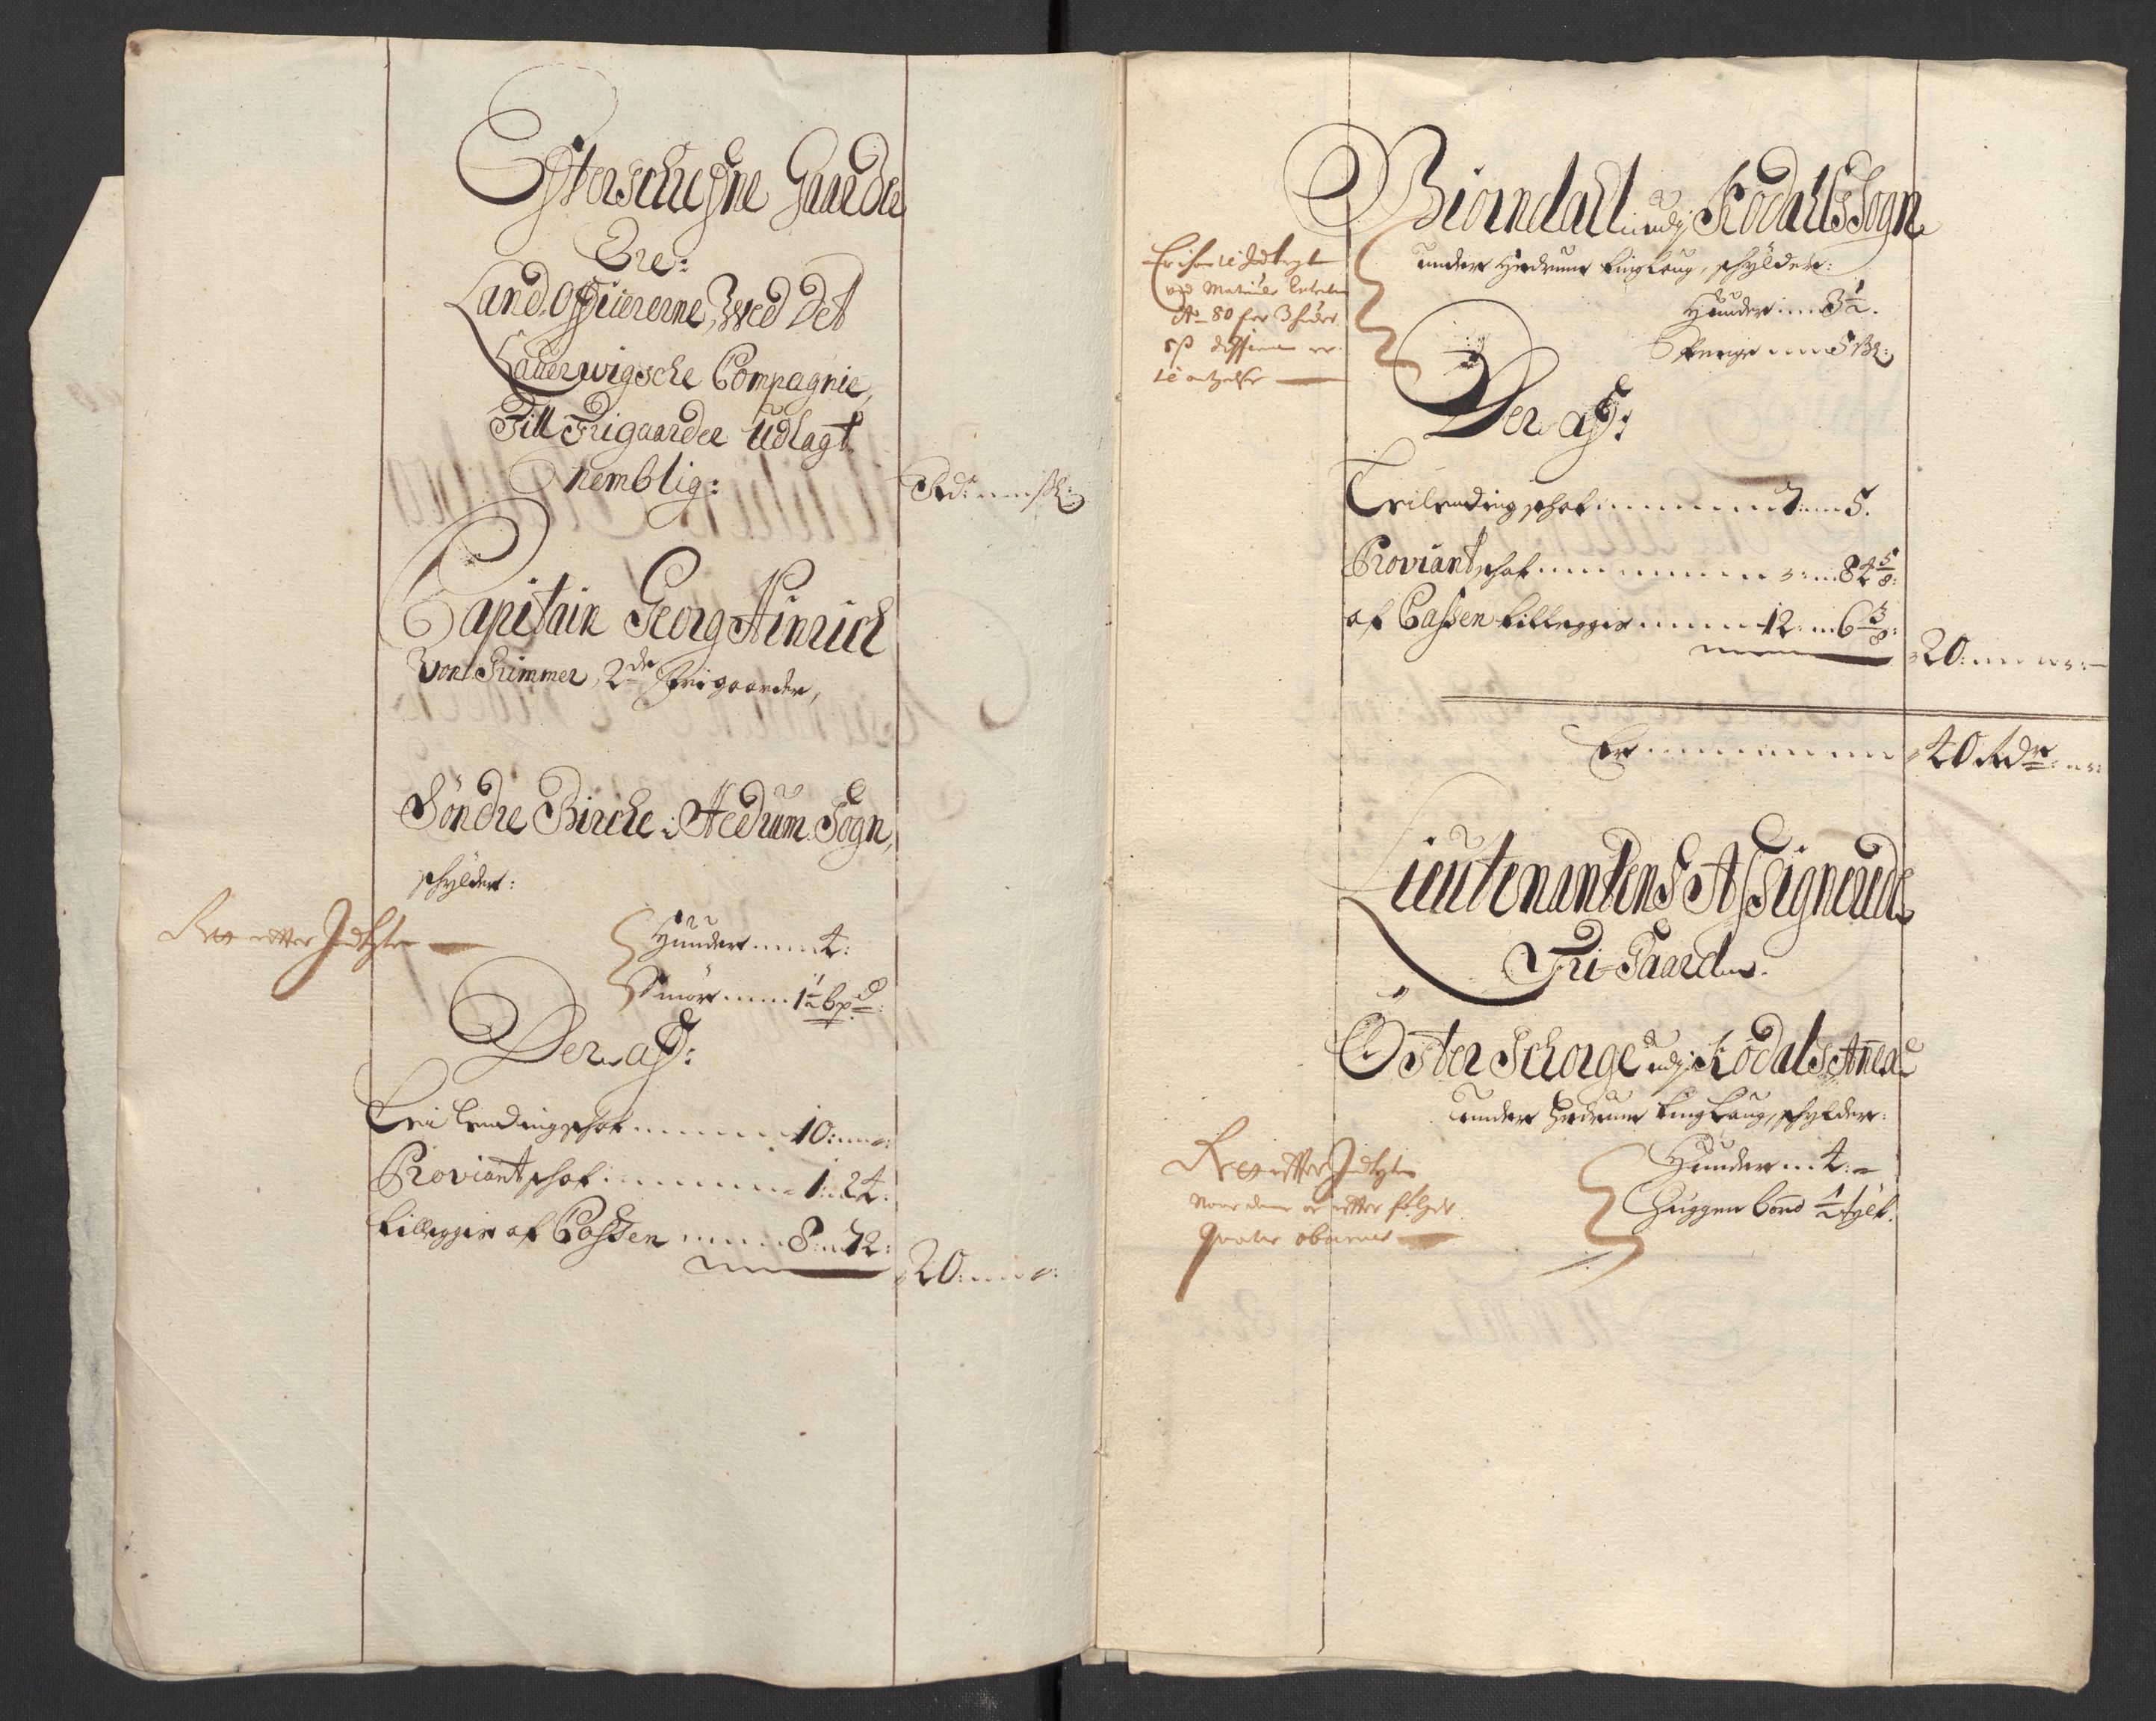 Efterschefne Gaarde
Ere:
Land. Officiererne, Wed Det
Lauerwigsche Compagnie,
Till Frigaarder Udlagt
nemblig:
Rd: sk:
Capitain Georg Hinrich
von Trimmer, 2de Frigaarder,
Söndre Bircke i Hedrum Sogn,
schylder:
Hunder 4:
Smör 1½ bpd:
Der af:
Leilendingschat 10:
Proviantschat 1: 24:
tilleggis af Cassen 8: 72:
20:
Biörndall udj Kodalls Sogn
under Hedrum tinglaug, schylder:
Huuder 3½.
Penge 5 sk:
ved
Ao 80 for 3 huder
Der af:
Leilendingschat 7: 5.
Proviantschat 84 5/8:
af Cassen tilleggis 12: 6 3/8:
20:
Er 40 Rdr:
Lieutenantens Assignerede
Fri-Gaarder.
Öster Schorge udj Kodals Anex
under Hedrum tinglaug, schylder:
Huuder 4:
Huggen bond ½ tylt.